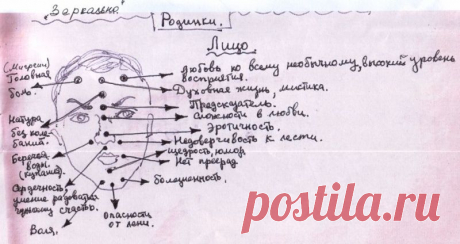 "Зеркально"
Родинки.
Лицо
(Мигрени)
Головная
боль.
Натура
без коле-
баний.
Береги
воды
(купание)
Сердечность,
умение радоваться
чужому счастью.
Воля,
Любовь ко всему необычному, высокий уровень
восприятия.
Духовная жизнь, мистика.
Предсказатель.
Сложности в любви.
Эротичность.
Недоверчивость к лести.
щедрость, юмор
Нет преград
Болезненность,
Опасности
от лени.
postila.ru